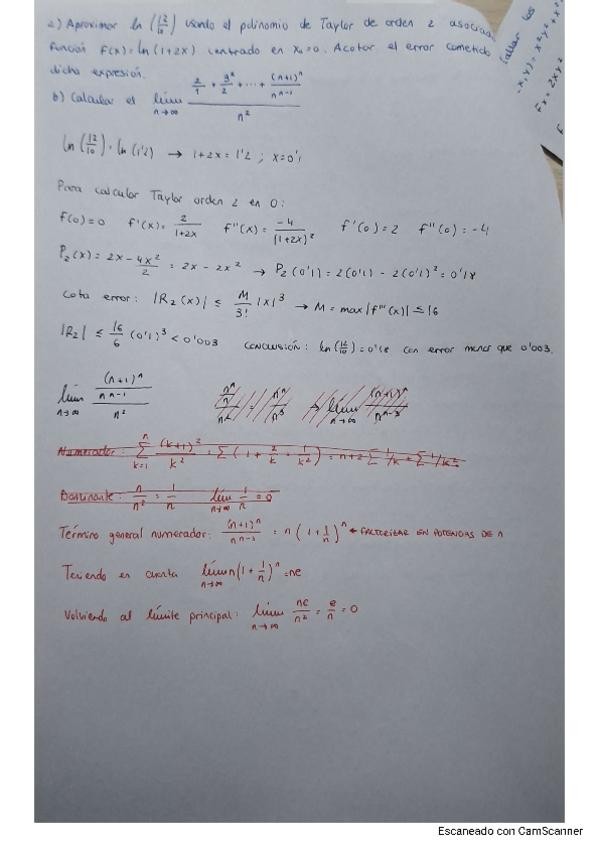 a) Aproximar ln (12/10) usando el polinomio de Taylor de orden 2 asociada
función F(x) = ln (1+2x) centrado en x₀=0. Acotar el error cometido
dicha expresión.
b) Calcular el lím n→∞ (2/1 + 3²/2 + ... + (n+1)ⁿ/nⁿ⁻¹) / n²
ln (12/10) = ln (1'2) → 1+2x = 1'2 ; x=0'1
Para calcular Taylor orden 2 en 0:
f(0)=0 f'(x) = 2/(1+2x) f''(x) = -4/(1+2x)² f'(0)=2 f''(0) = -4
P₂(x) = 2x - 4x²/2 = 2x - 2x² → P₂(0'1) = 2(0'1) - 2(0'1)² = 0'18
Cota error: |R₂(x)| ≤ M/3! |x|³ → M = max |f'''(x)| ≤ 16
|R₂| ≤ 16/6 (0'1)³ < 0'003 CONCLUSIÓN: ln(12/10) = 0'18 con error menor que 0'003.
lím n→∞ ((n+1)ⁿ/nⁿ⁻¹) / n²
Numerador: Σ k=1 n (k+1)²/k² = Σ (1 + 2/k + 1/k²) = n+2 Σ 1/k + Σ 1/k²
Dominante: n/n² = 1/n lím n→∞ 1/n = 0
Término general numerador: (n+1)ⁿ/nⁿ⁻¹ = n (1 + 1/n)ⁿ ← FACTORIZAR EN POTENCIAS DE n
Teniendo en cuenta lím n→∞ n(1 + 1/n)ⁿ = ne
Volviendo al límite principal: lím n→∞ ne/n² = e/n = 0
allar los
x,y) = x²y² + x²
Fx = 2xy²
Escaneado con CamScanner